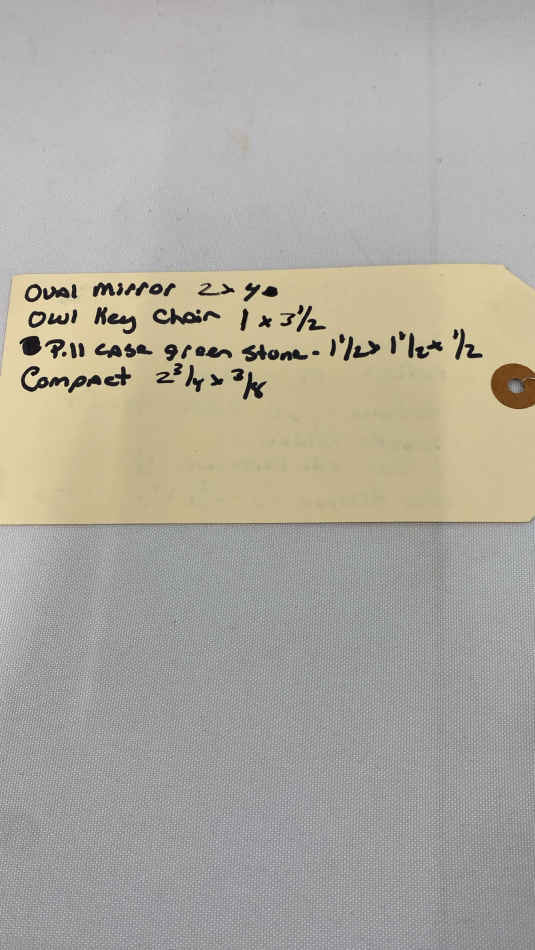 Oval Mirror 2 x 4
Owl Key Chain 1 x 3 1/2
Pill Case green stone - 1 1/2 x 1 1/2 x 1/2
Compact 2 3/4 x 3/8